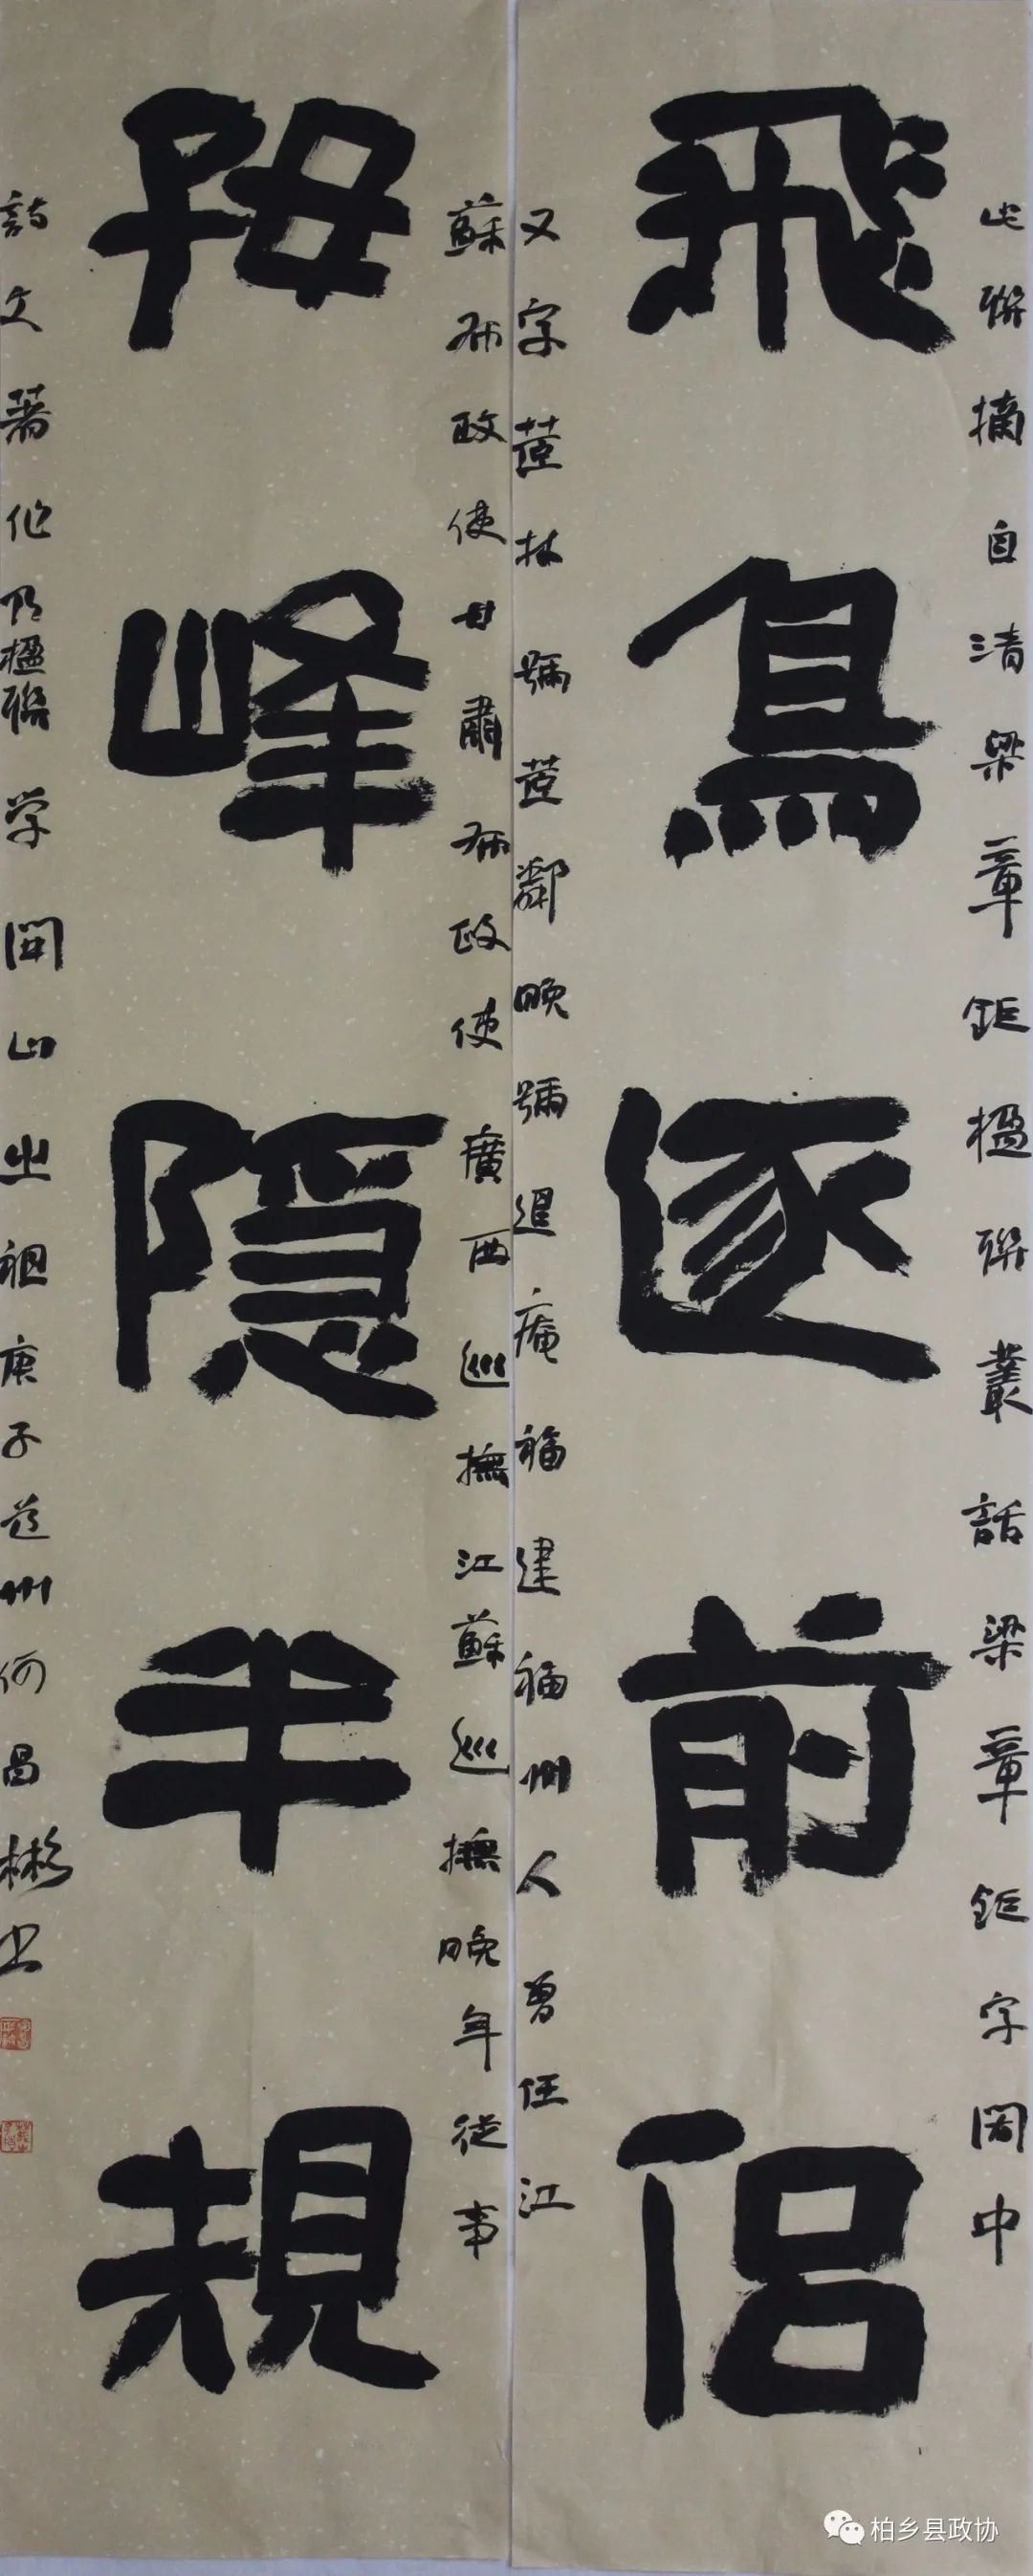 此聯摘自清梁章鉅楹聯叢話梁章鉅字閎中
飛鳥逐前侶
又字茝林號茝鄰晚號退庵福建福州人曾任江
蘇布政使甘肅布政使廣西巡撫江蘇巡撫晚年從事
峰隐半規
詩文著作乃楹聯学開山之祖庚子道州何昌彬书
柏乡县政协